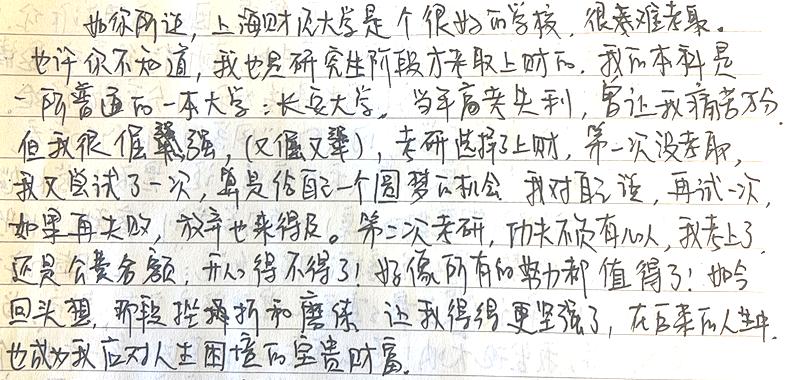 如你所述，上海财经大学是个很好的学校，很素难考取。
也许你不知道，我也是研究生阶段才考取上财的，我的本科是
一所普通的一本大学：长安大学。当年高考失利，曾让我痛苦万分，
但我很倔强，（又倔又犟），考研选择了上财，第一次没考取，
我又尝试了一次，算是给自己一个圆梦的机会 我对自己说，再试一次，
如果再失败，放弃也来得及。第二次考研，功夫不负有心人，我考上了，
还是公费名额，开心得不得了！好像所有的努力都值得了！如今
回头想，那段挫折和磨练 让我得得更坚强了，在后来的人生中，
也成为我应对人生困境的宝贵财富。